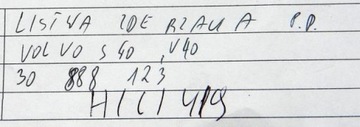 LISTWA ZDERZAKA P.P.
VOLVO S40, V40
30 888 123
HICI 419